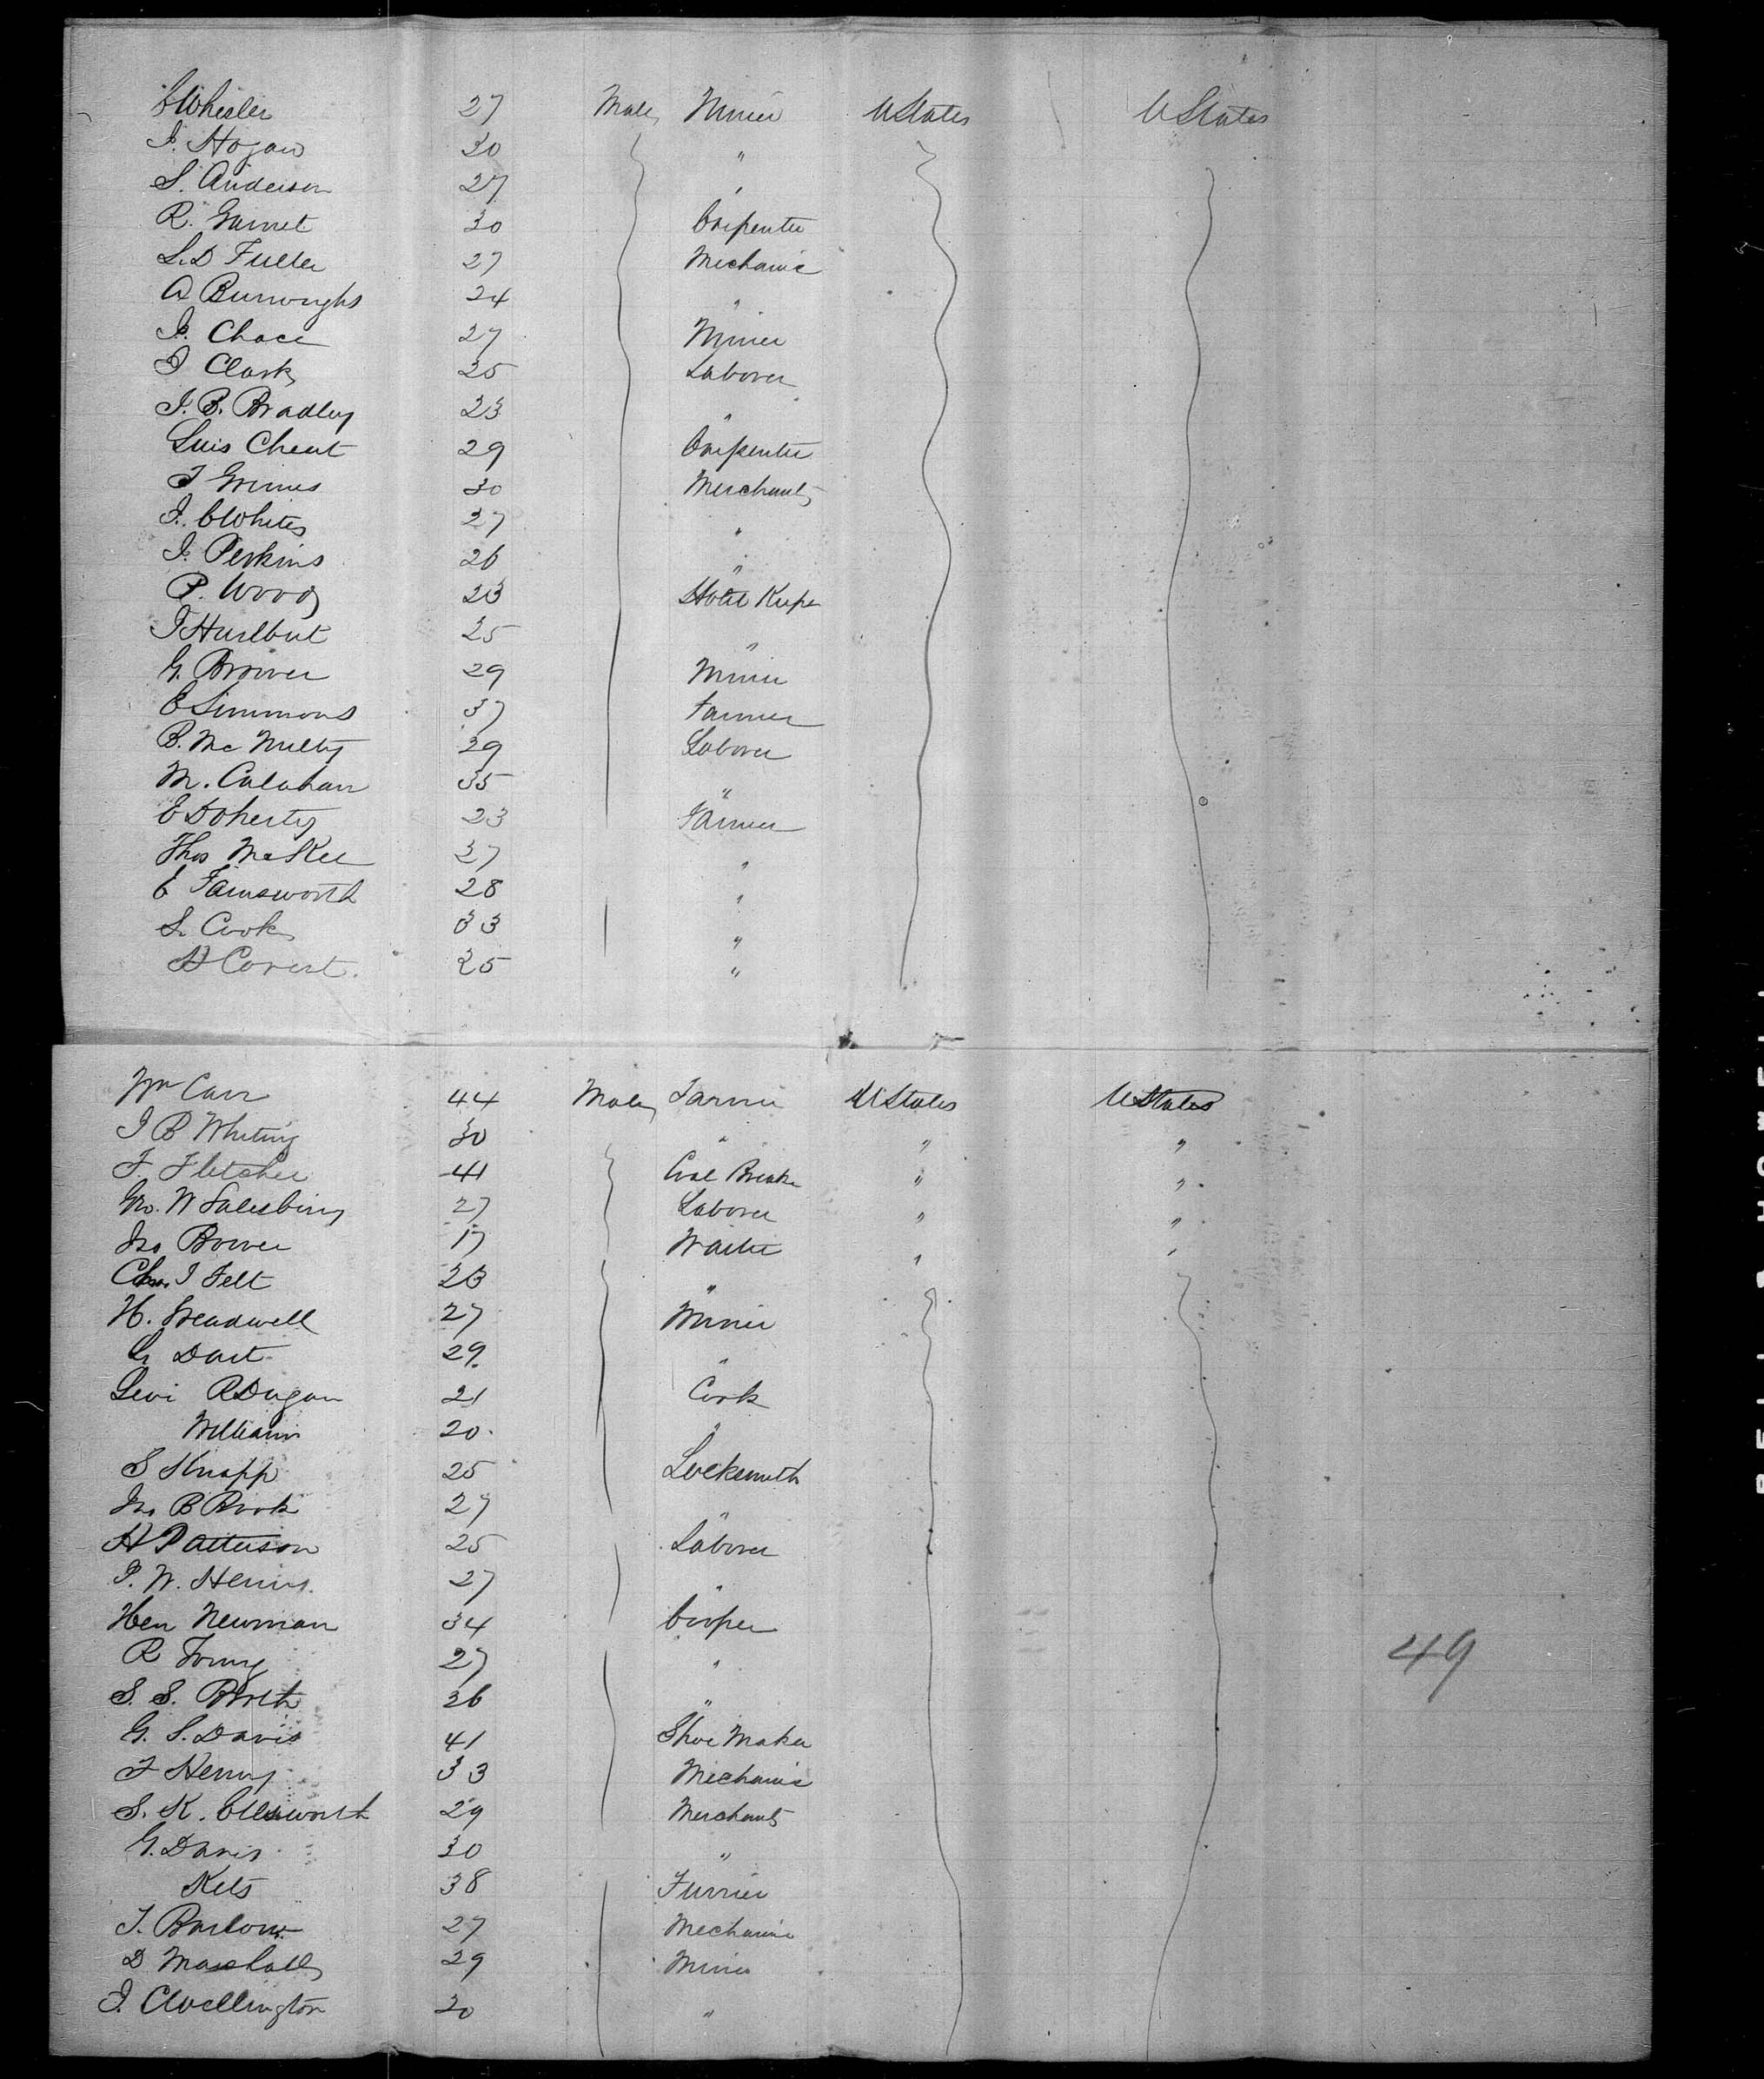 C Wheeler 27 Male Miner U States U States
J. Hogan 30 "
S. Anderson 27 "
R. Garnet 30 Carpenter
L. D Fuller 27 Mechanic
A Burroughs 24 "
J. Chace 27 Miner
J Clark 25 Laborer
J. B. Bradley 23 "
Luis Cheat 29 Carpenter
J Grimes 30 Merchant
J. C White 27 "
J. Perkins 26 "
P. Wood 23 Hotel Keeper
J Hurlbut 25 "
G. Brower 29 Miner
E Simmons 37 Farmer
B. Mc Nulty 29 Laborer
M. Calahan 35 "
E Doherty 23 Farmer
Thos McKee 27 "
E Farnsworth 28 "
S. Cook 33 "
D Covert. 25 "
Wm Carr 44 Male Farmer U States U States
J B Whiting 30 " " "
F. Fletcher 41 Coal Breaker " "
Geo. W Salesbury 27 Laborer " "
Jno Brower 17 Waiter " "
Chas. J Felt 23 "
H. Treadwell 27 Miner
G Dart 29. "
Levi R Dugan 21 Cook
William 20. "
S Knapp 25 Locksmith
Jno B Brook 27 "
H Patterson 25 Laborer
P. W. Henry. 27 "
Hen Newman 34 Cooper
R Young 27 "
S. S. 36 "
G. S. Davis 41 Shoe Maker
F Henry 33 Mechanic
S. K. Ellsworth 29 Merchant
G. Davis 30 "
Kets 38 Furrier
J. Barlow 27 Mechanic
D Marshall 29 Miner
J. C Wellington 20 "
49